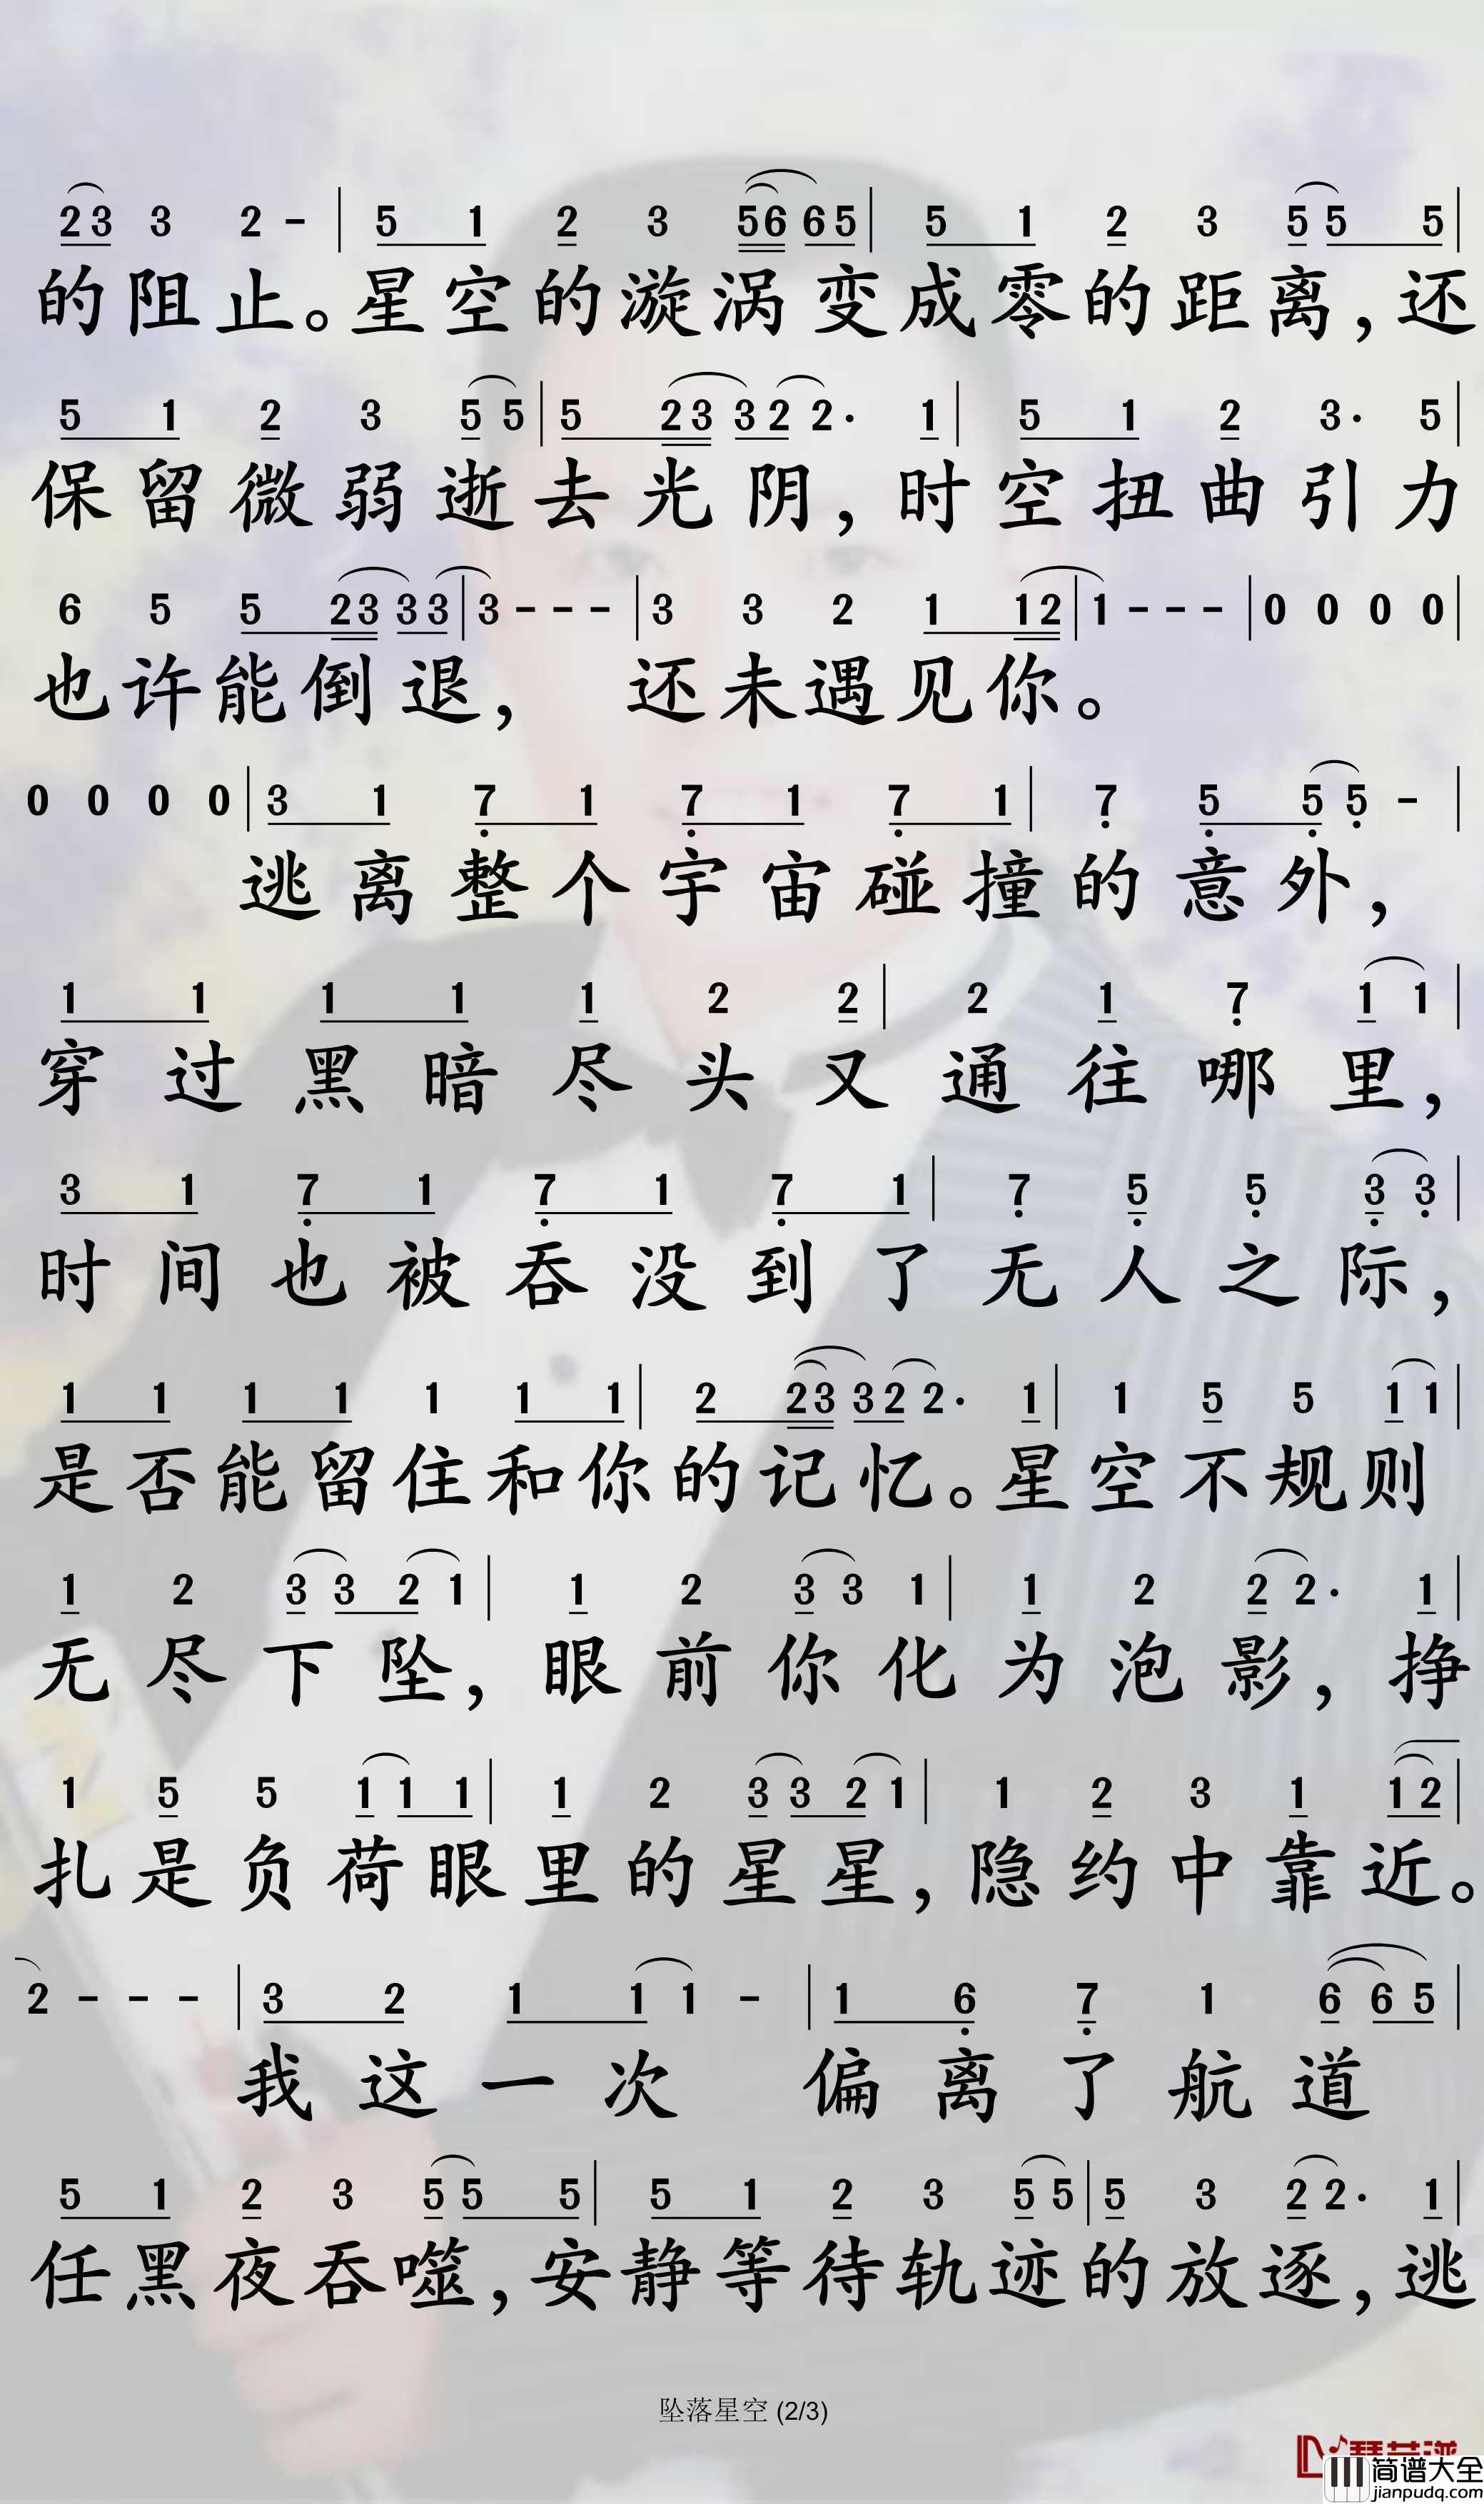 23 3 2 - | 5 1 2 3 56 65 | 5 1 2 3 55 5 |
的阻止。星空的漩涡变成零的距离,还
5 1 2 3 5 5 | 5 23 32 2. 1 | 5 1 2 3. 5 |
保留微弱逝去光阴,时空扭曲引力
6 5 5 23 33 | 3 - - - | 3 3 2 1 12 | 1 - - - | 0 0 0 0 |
也许能倒退, 还未遇见你。
0 0 0 0 | 3 1 7 1 7 1 7 1 | 7 5 5 5 - |
逃离整个宇宙碰撞的意外,
1 1 1 1 1 2 2 | 2 1 7 1 1 |
穿过黑暗尽头又通往哪里,
3 1 7 1 7 1 7 1 | 7 5 5 3 3 |
时间也被吞没到了无人之际,
1 1 1 1 1 1 1 | 2 23 32 2. 1 | 1 5 5 1 1 |
是否能留住和你的记忆。星空不规则
1 2 3 3 2 1 | 1 2 3 3 1 | 1 2 2 2. 1 |
无尽下坠,眼前你化为泡影,挣
1 5 5 1 1 1 | 1 2 3 3 2 1 | 1 2 3 1 12 |
扎是负荷眼里的星星,隐约中靠近。
2 - - - | 3 2 1 1 1 - | 1 6 7 1 6 6 5 |
我这一次 偏离了航道
5 1 2 3 5 5 5 | 5 1 2 3 5 5 | 5 3 2 2. 1 |
任黑夜吞噬,安静等待轨迹的放逐,逃
坠落星空 (2/3)
简谱大全
jianpudq.com